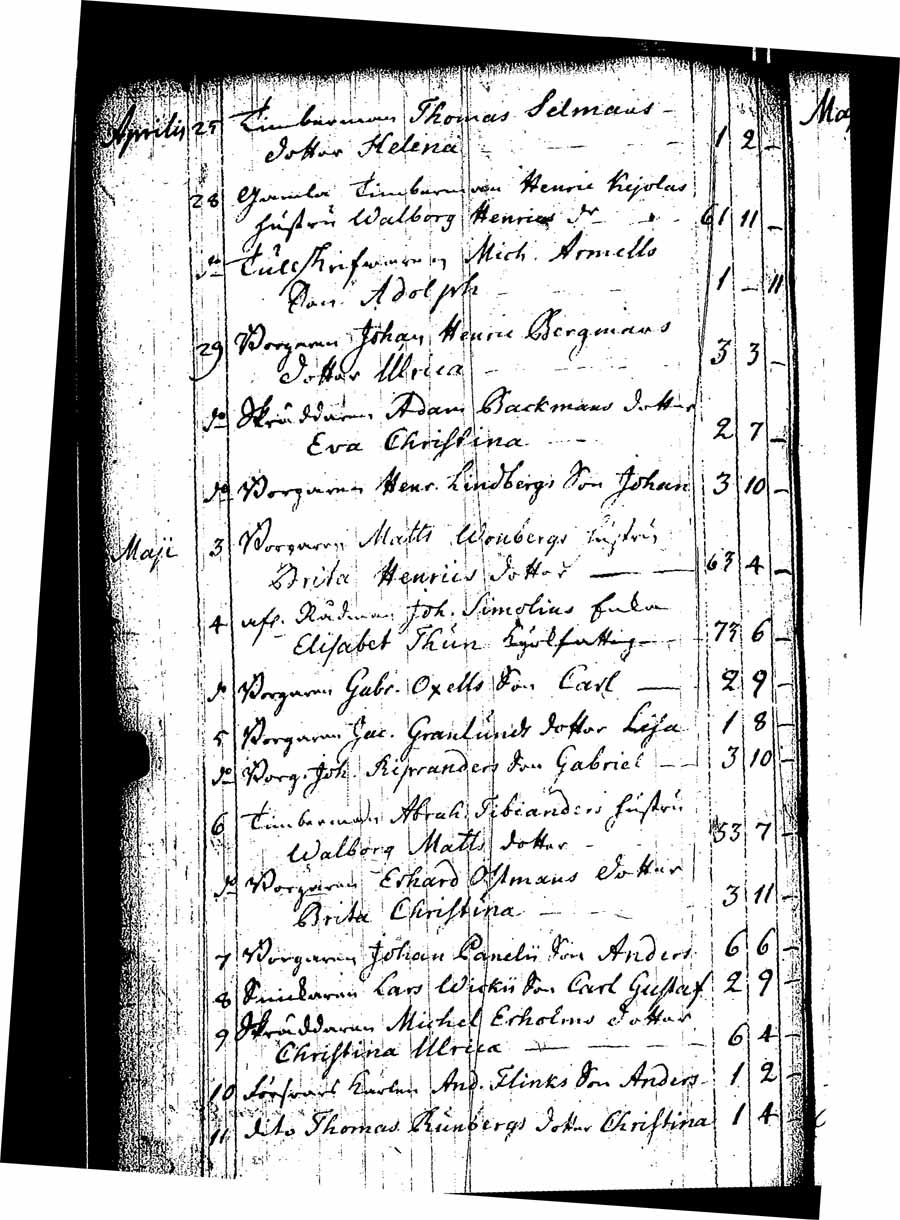 Aprilis 25 Timberman Thomas Selmans May
dotter Helena 1 2 -
28 Gamla Timberman Henric Kejolas
hustru Walborg Henrics dr 61 11 -
do Tullskrifvaren Mich. Armells
Son Adolph 1 - 11
29 Borgaren Johan Henric Bergmans
dotter Ulrica 3 3 -
do Skräddaren Adam Backmans dotter
Eva Christina 2 7 -
do Borgaren Henr. Lindbergs Son Johan 3 10 -
Maji 3 Borgaren Matts Wonbergs hustru
Brita Henrics dotter 63 4 -
4 afl. Rådman Joh. Simolius Enka
Elisabet Thun 73 6 -
do Borgaren Gabr. Oxells Son Carl 2 9 -
5 Borgaren Jac. Granlunds dotter Lisa 1 8 -
do Borg. Joh. Repranders Son Gabriel 3 10 -
6 Timberman Abrah. Tibeanders hustru
Walborg Matts dotter 53 7 -
do Borgaren Erhard Ostmans dotter
Brita Christina 3 11 -
7 Borgaren Johan Panelii Son Anders 6 6 -
8 Snickaren Lars Wickii Son Carl Gustaf 2 9 -
9 Skräddaren Michel Erholms dotter
Christina Ulrica 6 4 -
10 Försvars karlen And. Flinks Son Anders 1 2 -
11 dito Thomas Runbergs dotter Christina 1 4 -